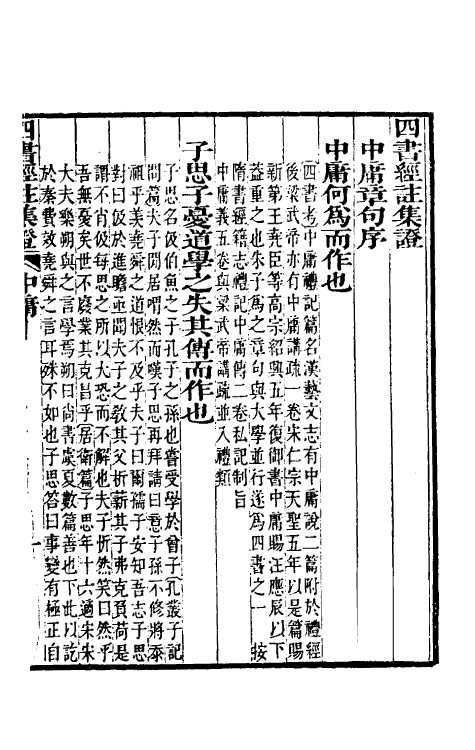 四書經註集證
中庸章句序
中庸何爲而作也
四書考中庸禮記篇名漢藝文志有中庸說二篇附於禮經
後梁武帝亦有中庸講疏一卷宋仁宗天聖五年以是篇賜
新第王堯臣等高宗紹興五年復御書中庸賜汪應辰以下
益重之也朱子爲之章句與大學並行遂爲四書之一　按
隋書經籍志禮記中庸傳二卷私記制旨
中庸義五卷與梁武帝講疏並入禮類
子思子憂道學之失其傳而作也
子思名伋伯魚之子孔子之孫也嘗受學於曾子孔叢子記
問篇夫子閒居喟然而嘆子思再拜請曰意子孫不修將忝
祖乎羨堯舜之道恨不及乎夫子曰爾孺子安知吾志子思
對曰伋於進瞻亟聞夫子之教其父析薪其子弗克負荷是
謂不肖伋每思之所以大恐而不解也夫子忻然笑曰然乎
吾無憂矣世不廢業其克昌乎居衛篇子思年十六適宋宋
大夫樂朔與之言學焉朔曰尚書虞夏數篇善也下此以訖
於秦費效堯舜之言耳殊不如也子思答曰事變有極正自
四書經註集證　中庸　一